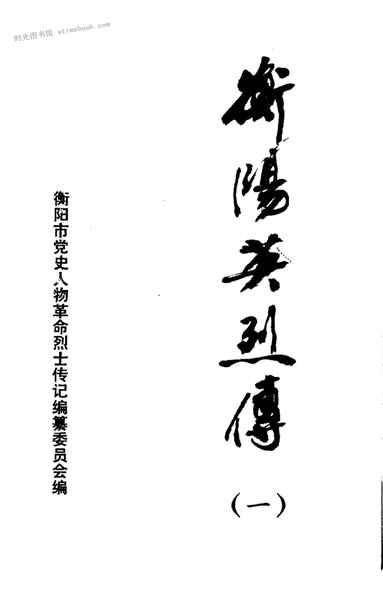 时光图书馆 etimebook.com
衡陽英烈傳
(一)
衡阳市党史人物革命烈士传记编纂委员会编